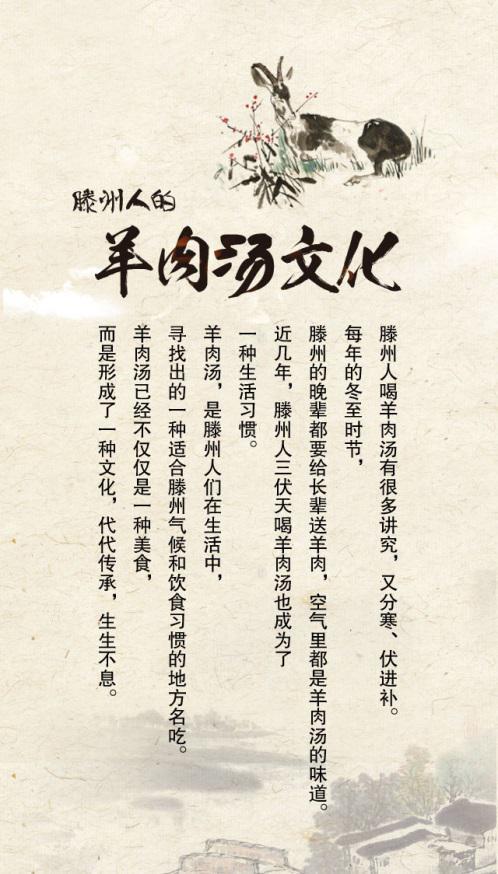 滕州人的
羊肉汤文化
滕州人喝羊肉汤有很多讲究，又分寒、伏进补。
每年的冬至时节，
滕州的晚辈都要给长辈送羊肉，空气里都是羊肉汤的味道。
近几年，滕州人三伏天喝羊肉汤也成为了
一种生活习惯。
羊肉汤，是滕州人们在生活中，
寻找出的一种适合滕州气候和饮食习惯的地方名吃。
羊肉汤已经不仅仅是一种美食，
而是形成了一种文化，代代传承，生生不息。